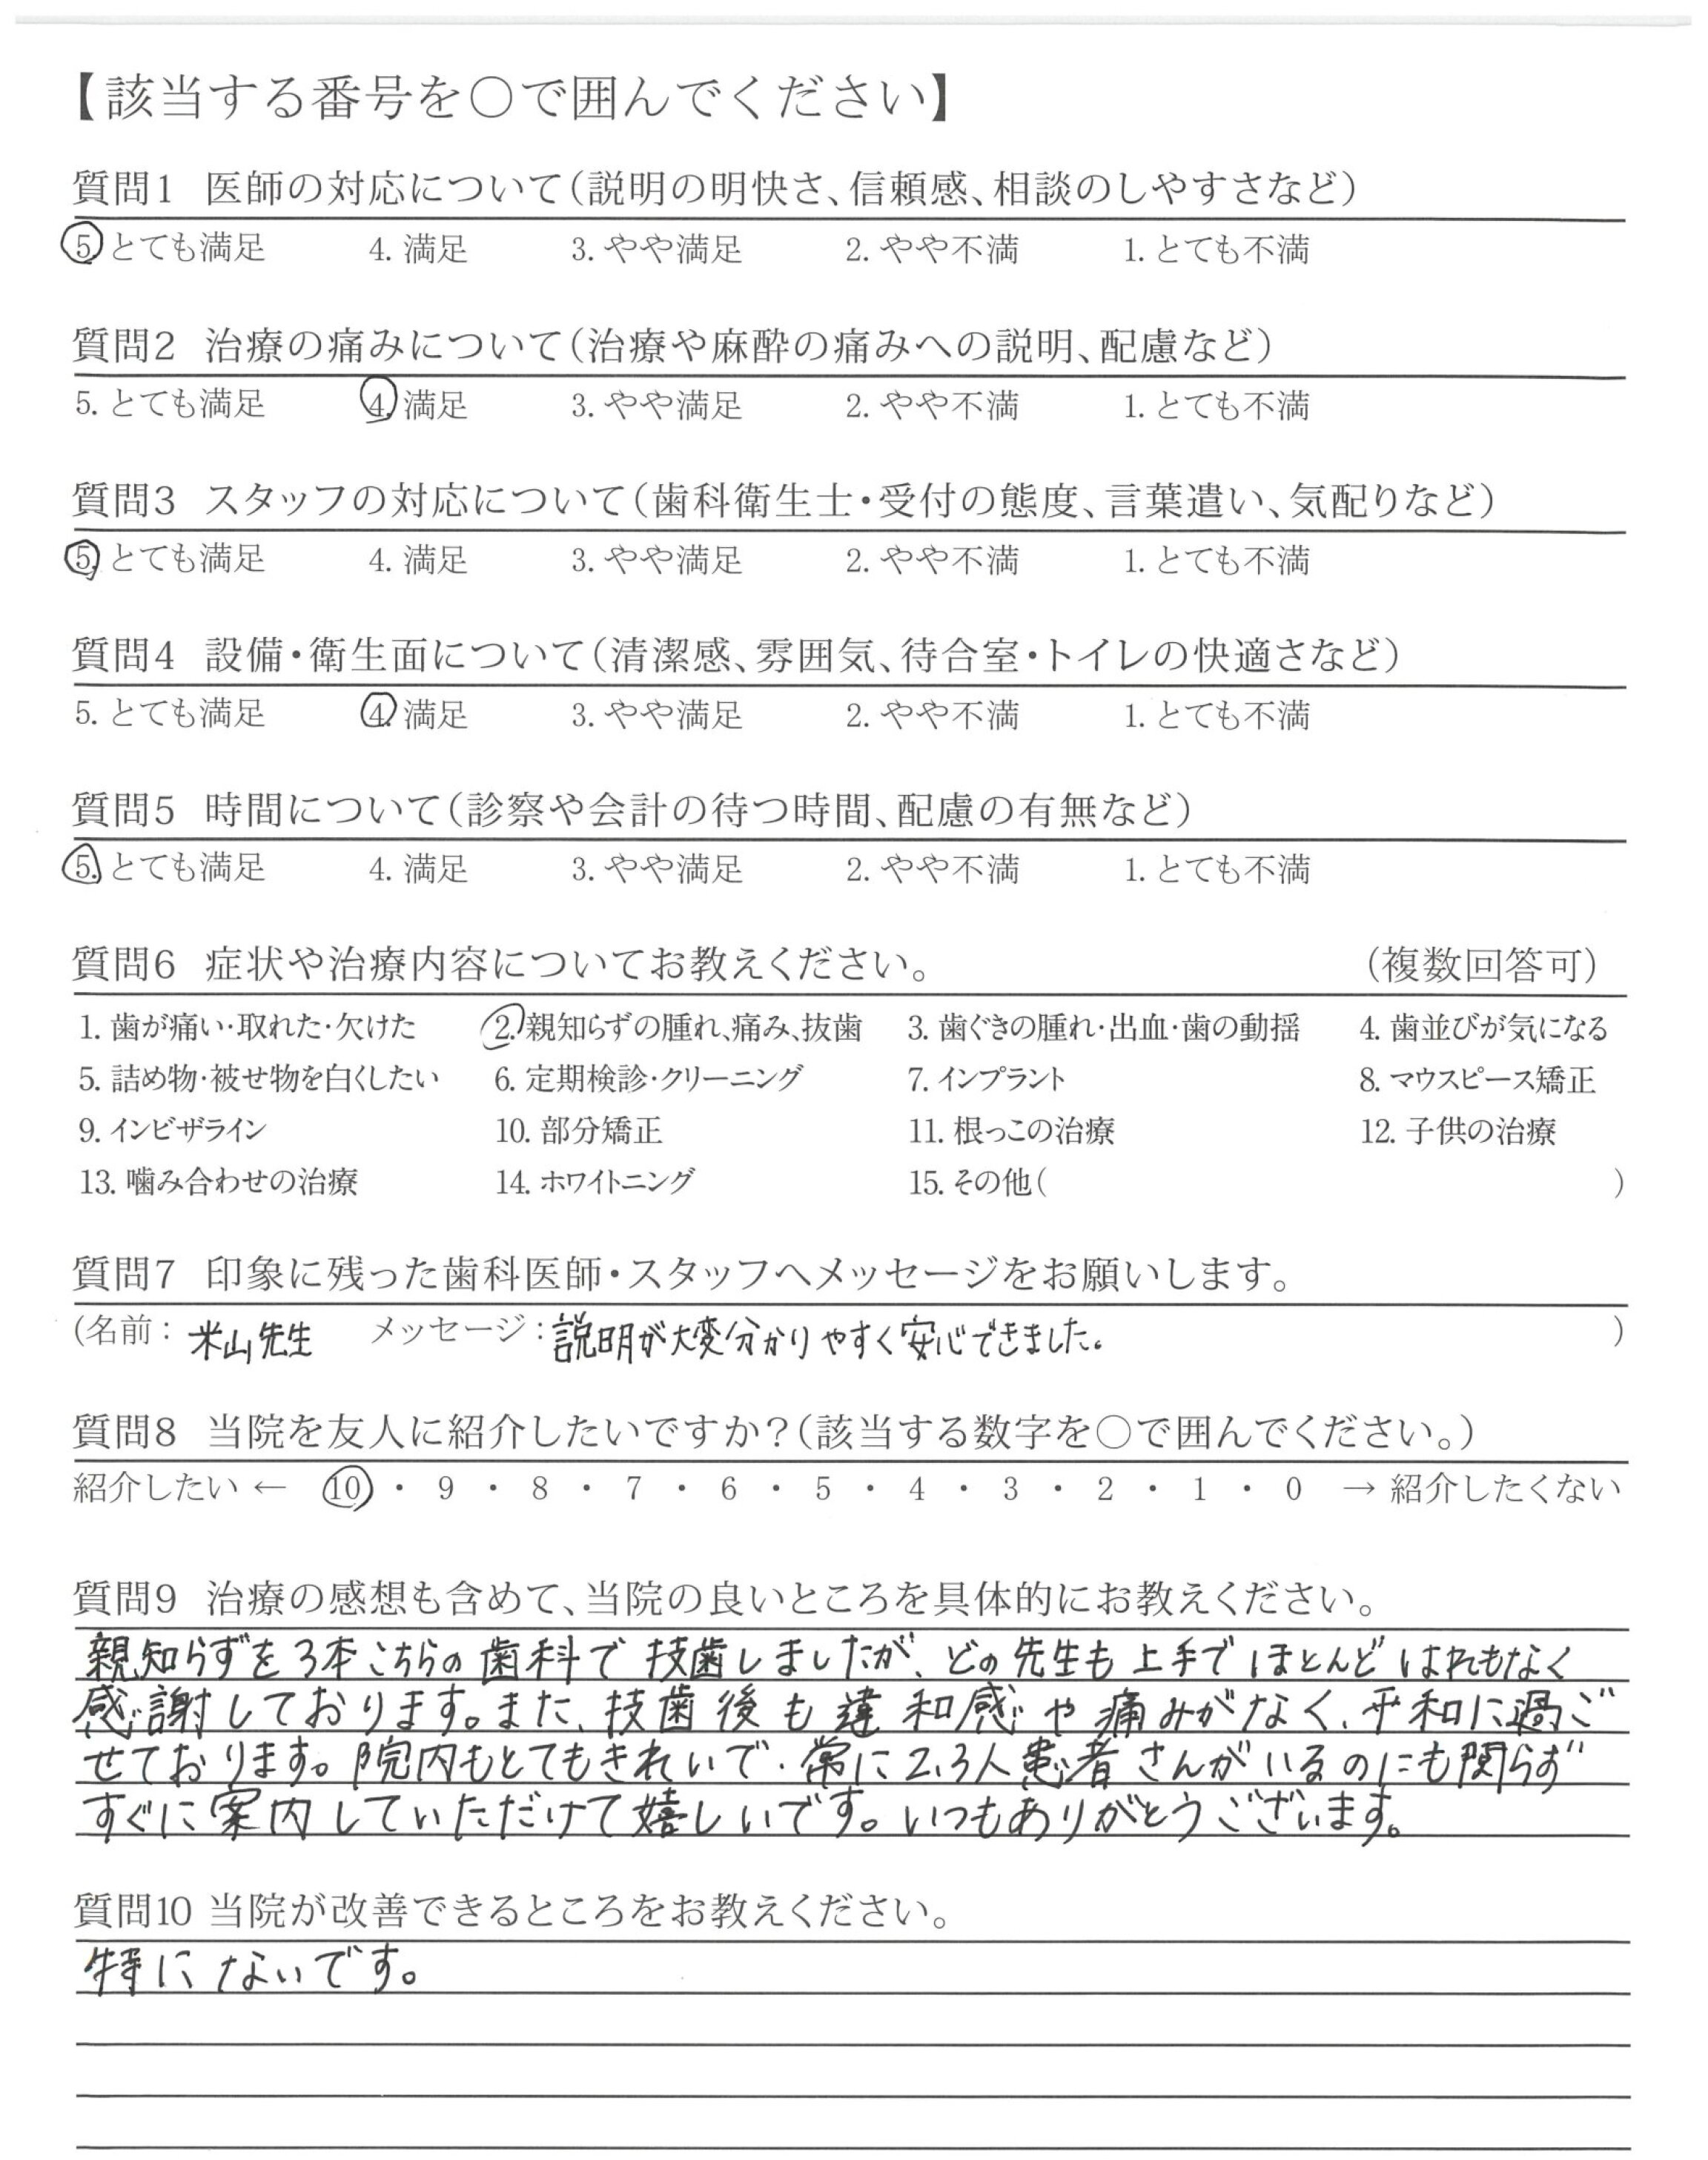 【該当する番号を〇で囲んでください】
質問1 医師の対応について(説明の明快さ、信頼感、相談のしやすさなど)
5. とても満足 4. 満足 3. やや満足 2. やや不満 1. とても不満
質問2 治療の痛みについて(治療や麻酔の痛みへの説明、配慮など)
5. とても満足 4. 満足 3. やや満足 2. やや不満 1. とても不満
質問3 スタッフの対応について(歯科衛生士・受付の態度、言葉遣い、気配りなど)
5. とても満足 4. 満足 3. やや満足 2. やや不満 1. とても不満
質問4 設備・衛生面について(清潔感、雰囲気、待合室・トイレの快適さなど)
5. とても満足 4. 満足 3. やや満足 2. やや不満 1. とても不満
質問5 時間について(診察や会計の待つ時間、配慮の有無など)
5. とても満足 4. 満足 3. やや満足 2. やや不満 1. とても不満
質問6 症状や治療内容についてお教えください。 (複数回答可)
1. 歯が痛い・取れた・欠けた 2. 親知らずの腫れ、痛み、抜歯 3. 歯ぐきの腫れ・出血・歯の動揺 4. 歯並びが気になる
5. 詰め物・被せ物を白くしたい 6. 定期検診・クリーニング 7. インプラント 8. マウスピース矯正
9. インビザライン 10. 部分矯正 11. 根っこの治療 12. 子供の治療
13. 噛み合わせの治療 14. ホワイトニング 15. その他( )
質問7 印象に残った歯科医師・スタッフへメッセージをお願いします。
(名前: 米山先生 メッセージ: 説明が大変分かりやすく安心できました。 )
質問8 当院を友人に紹介したいですか?(該当する数字を〇で囲んでください。)
紹介したい ← 10 ・ 9 ・ 8 ・ 7 ・ 6 ・ 5 ・ 4 ・ 3 ・ 2 ・ 1 ・ 0 → 紹介したくない
質問9 治療の感想も含めて、当院の良いところを具体的にお教えください。
親知らずを3本こちらの歯科で技歯しましたが、どの先生も上手でほとんどはれもなく
感謝しております。また、技歯後も違和感や痛みがなく、平和に過ご
せております。院内もとてもきれいで、常に2,3人患者さんがいるのにも関らず
すぐに案内していただけて嬉しいです。いつもありがとうございます。
質問10 当院が改善できるところをお教えください。
特にないです。